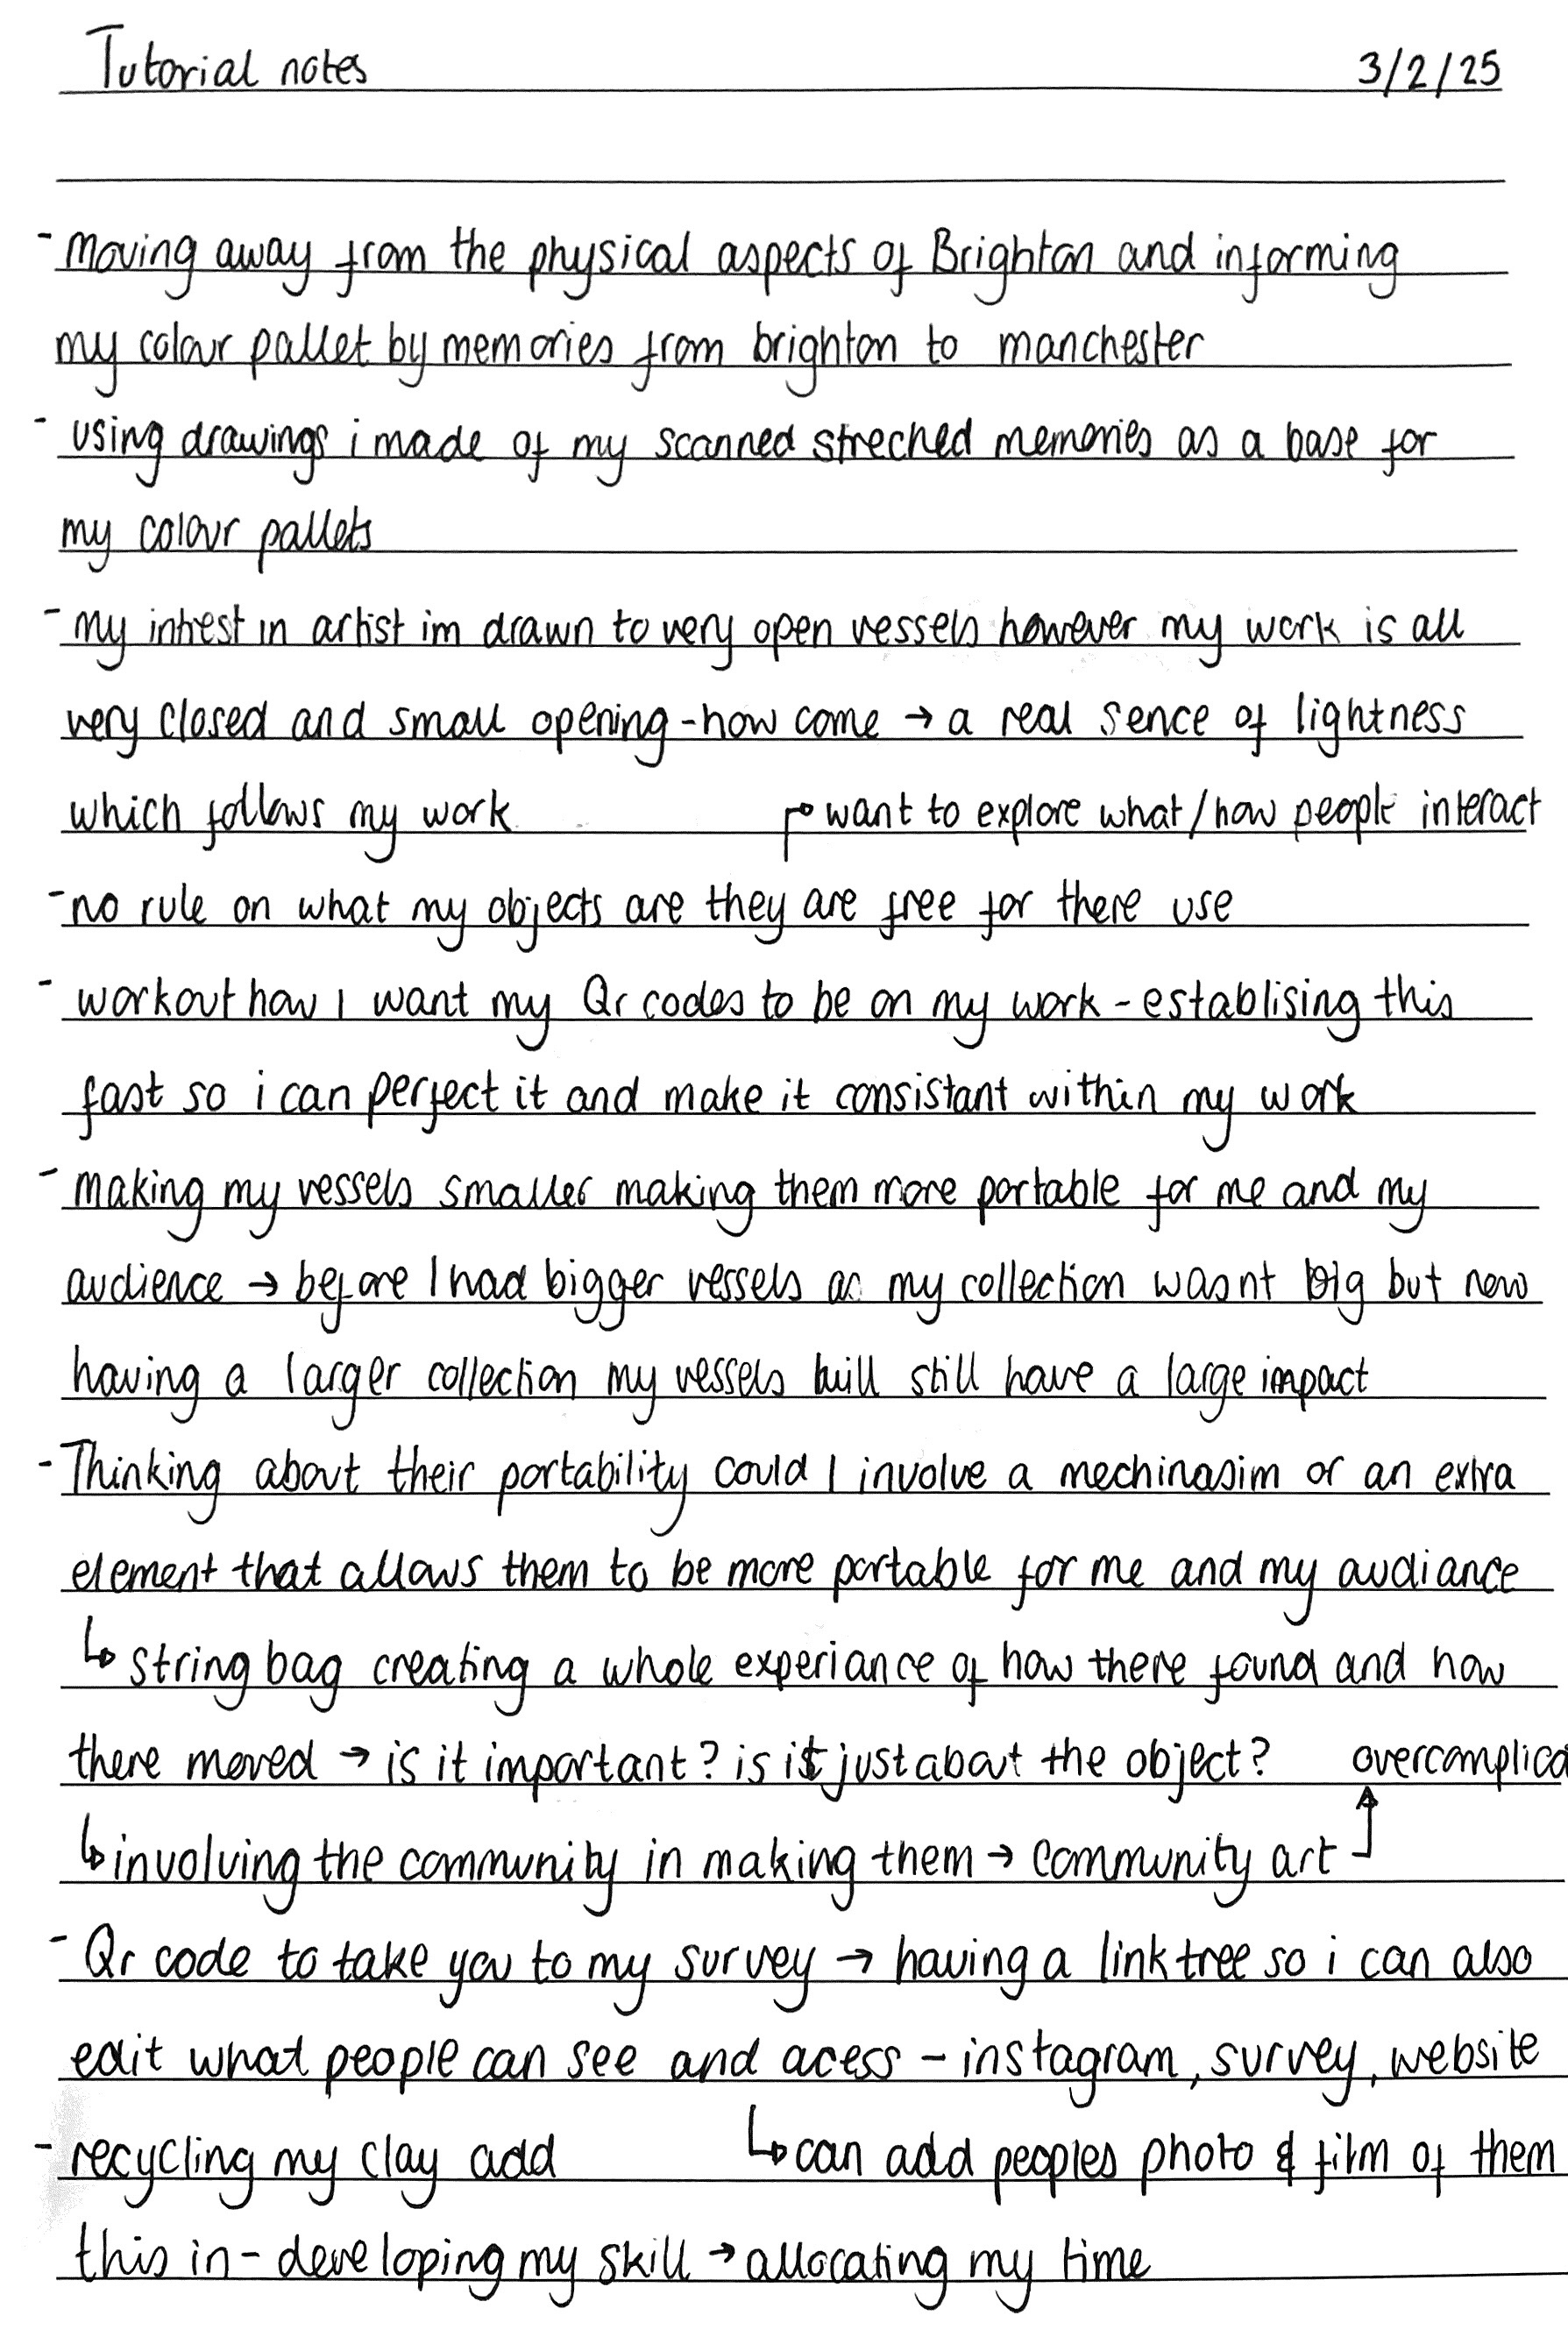 Tutorial notes 3/2/25
- moving away from the physical aspects of Brighton and informing
my colour pallet by memories from brighton to manchester
- using drawings i made of my scanned streched memories as a base for
my colour pallets
- my intrest in artist im drawn to very open vessels however my work is all
very closed and small opening - how come → a real sence of lightness
which follows my work ↱ want to explore what/how people interact
- no rule on what my objects are they are free for there use
- workout how I want my Qr codes to be on my work - establising this
fast so i can perfect it and make it consistant within my work
- making my vessels smaller making them more portable for me and my
audience → before I had bigger vessels as my collection wasnt big but now
having a larger collection my vessels will still have a large impact
- Thinking about their portability could I involve a mechinasim or an extra
element that allows them to be more portable for me and my audiance
↳ string bag creating a whole experiance of how there found and how
there moved → is it important? is it just about the object? overcomplica
↳ involving the community in making them → community art
- Qr code to take you to my survey → having a linktree so i can also
edit what people can see and acess - instagram, survey, website
- recycling my clay add ↳ can add peoples photo & film of them
this in - developing my skill → allocating my time